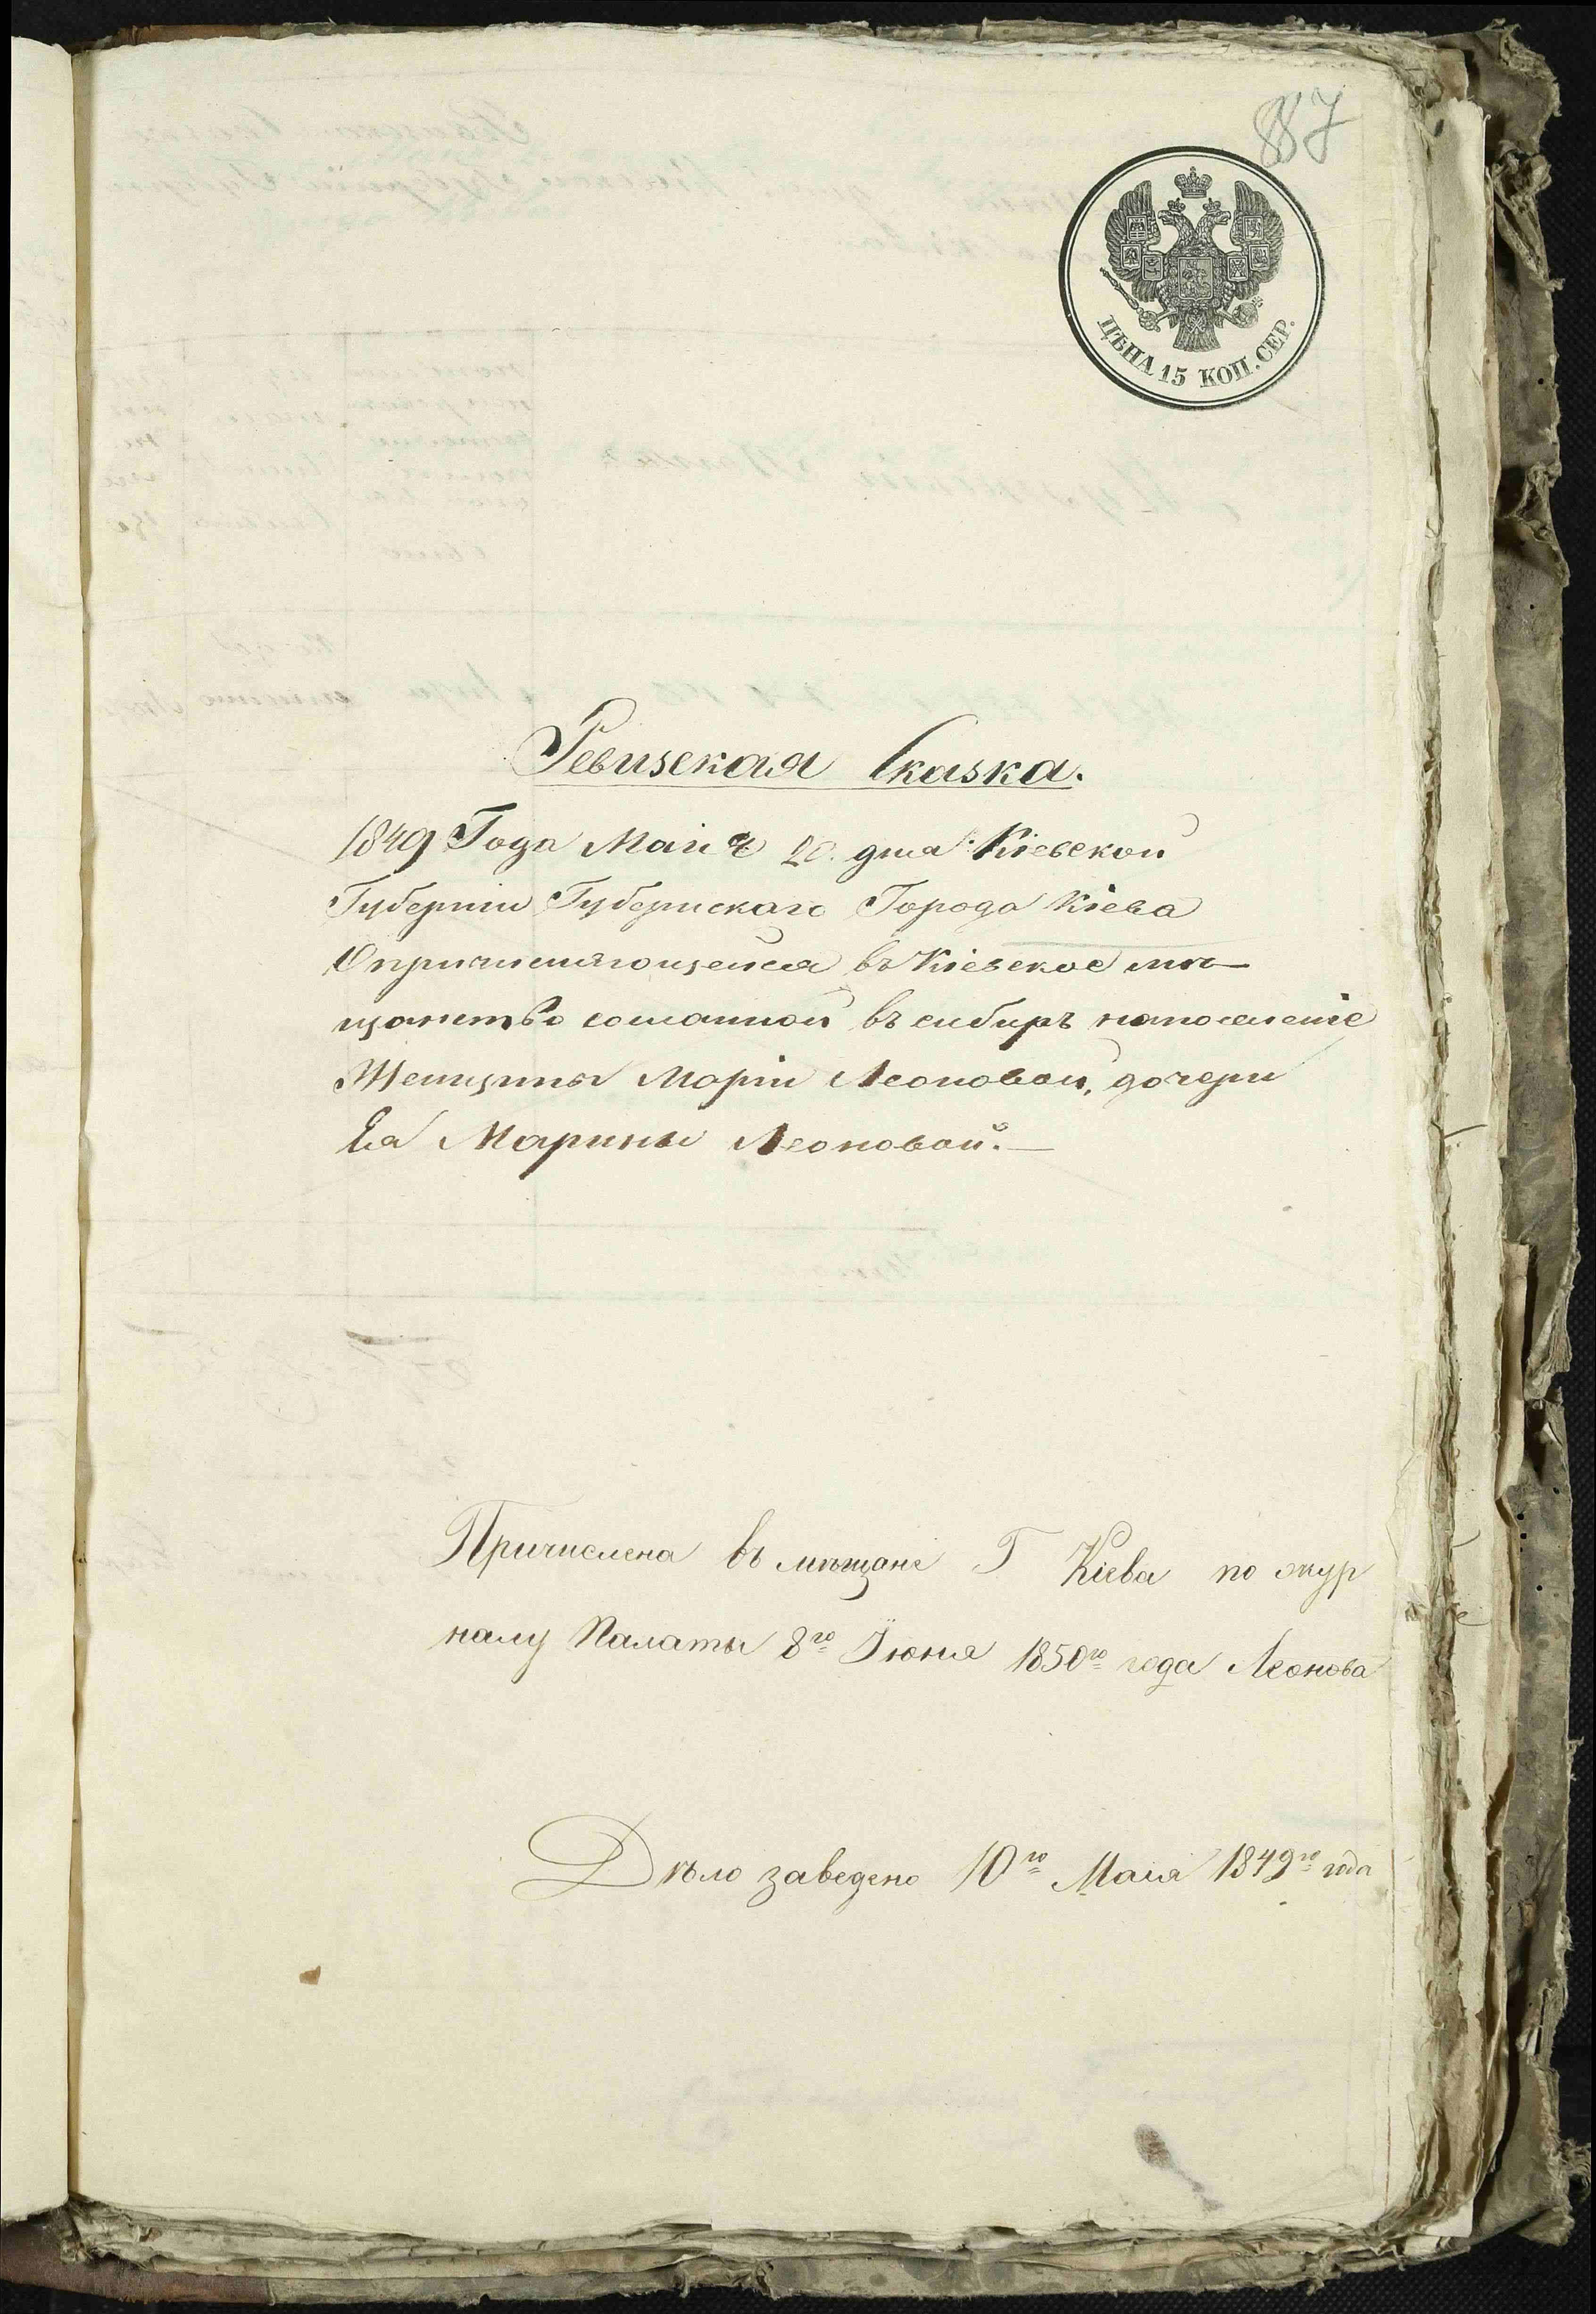 887
ЦѢНА 15 КОП. СЕР.
Ревизская Сказка.
1849 Года Маія 20. дня Кіевской
Губерніи Губернскаго Города Кіева
О причисляющейся въ Кіевское мѣ-
щанство сосланной въ сибирь напоселеніе
Женщины Маріи Леоновой, дочери
Ея Марины Леоновой.—
Причислена въ мѣщане Г Кіева по жур
налу Палаты 8го Іюня 1850го года Леонова
Дѣло заведено 10го Маія 1849го года